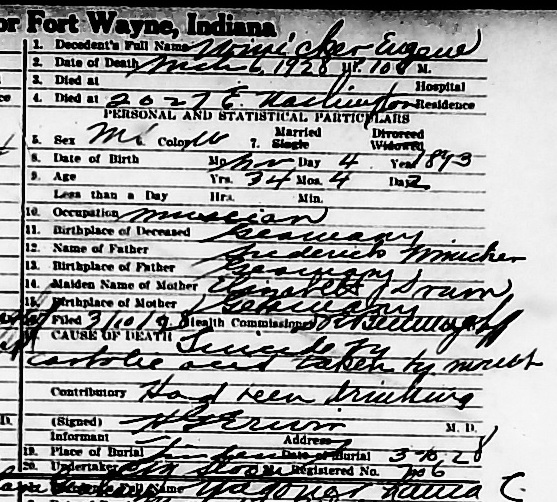 or Fort Wayne, Indiana
1. Decedent's Full Name Wmicker Eugene
2. Date of Death Mch 6, 1928 Hr. 10 M.
3. Died at Hospital
4. Died at 2027 E. Washington Residence
PERSONAL AND STATISTICAL PARTICULARS
5. Sex M. Color W 7. Married Single Divorced Widowed
8. Date of Birth Mo. Nov Day 4 Year 1893
9. Age Yrs. 34 Mos. 4 Da. 2
Less than a Day Hrs. Min.
10. Occupation musician
11. Birthplace of Deceased Germany
12. Name of Father Frederick
13. Birthplace of Father Germany
14. Maiden Name of Mother Elizabeth Drum
15. Birthplace of Mother Germany
Filed 3/10/28 Health Commissioner
CAUSE OF DEATH Suicide by
carbolic acid taken by mouth
Contributory Had been drinking
(Signed) H G Erwin M. D.
Informant Address
19. Place of Burial Lindenwood Date of Burial 3-10-28
20. Undertaker Registered No. 706
Full Name